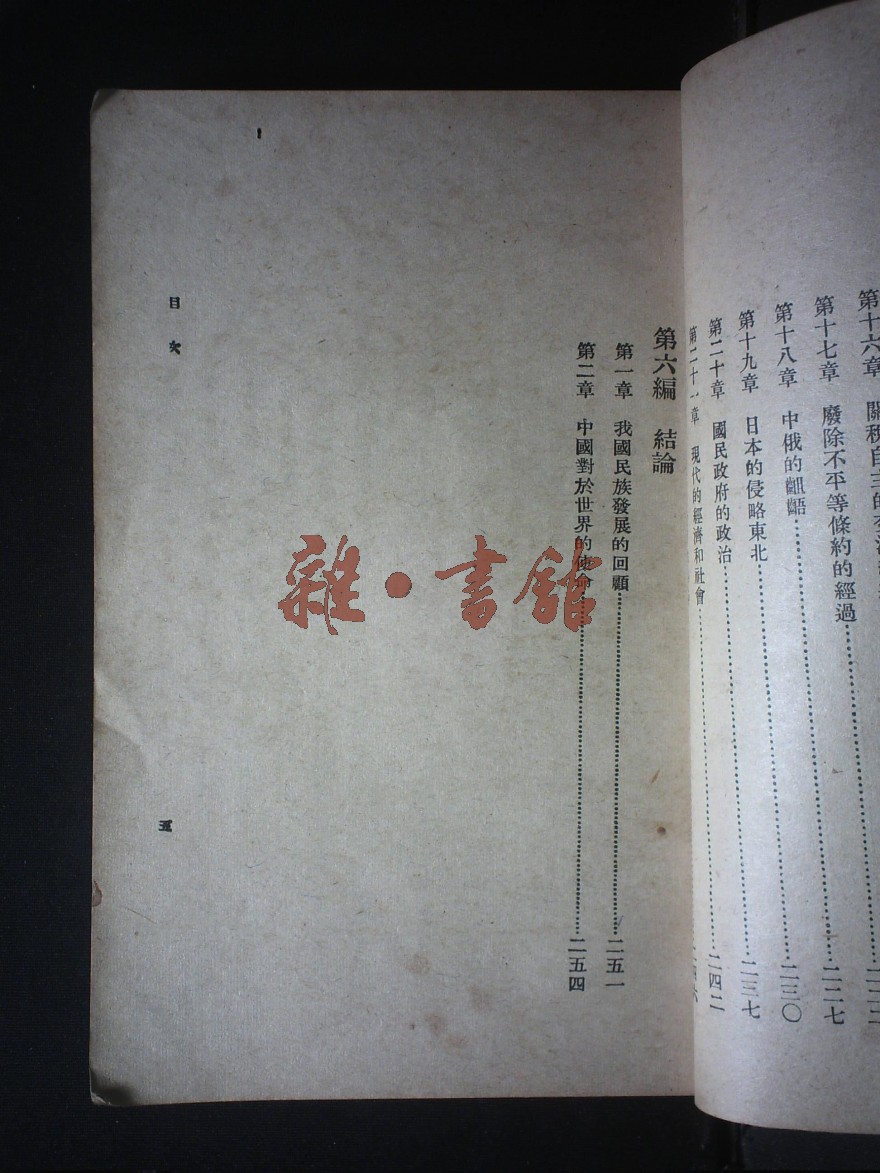 第十六章 關稅自主的交涉
第十七章 廢除不平等條約的經過……二二七
第十八章 中俄的齟齬……二三〇
第十九章 日本的侵略東北……二三七
第二十章 國民政府的政治……二四二
第二十一章 現代的經濟和社會……二四六
第六編 結論
第一章 我國民族發展的回顧……二五一
第二章 中國對於世界的使命……二五四
目次
五
雜·書館